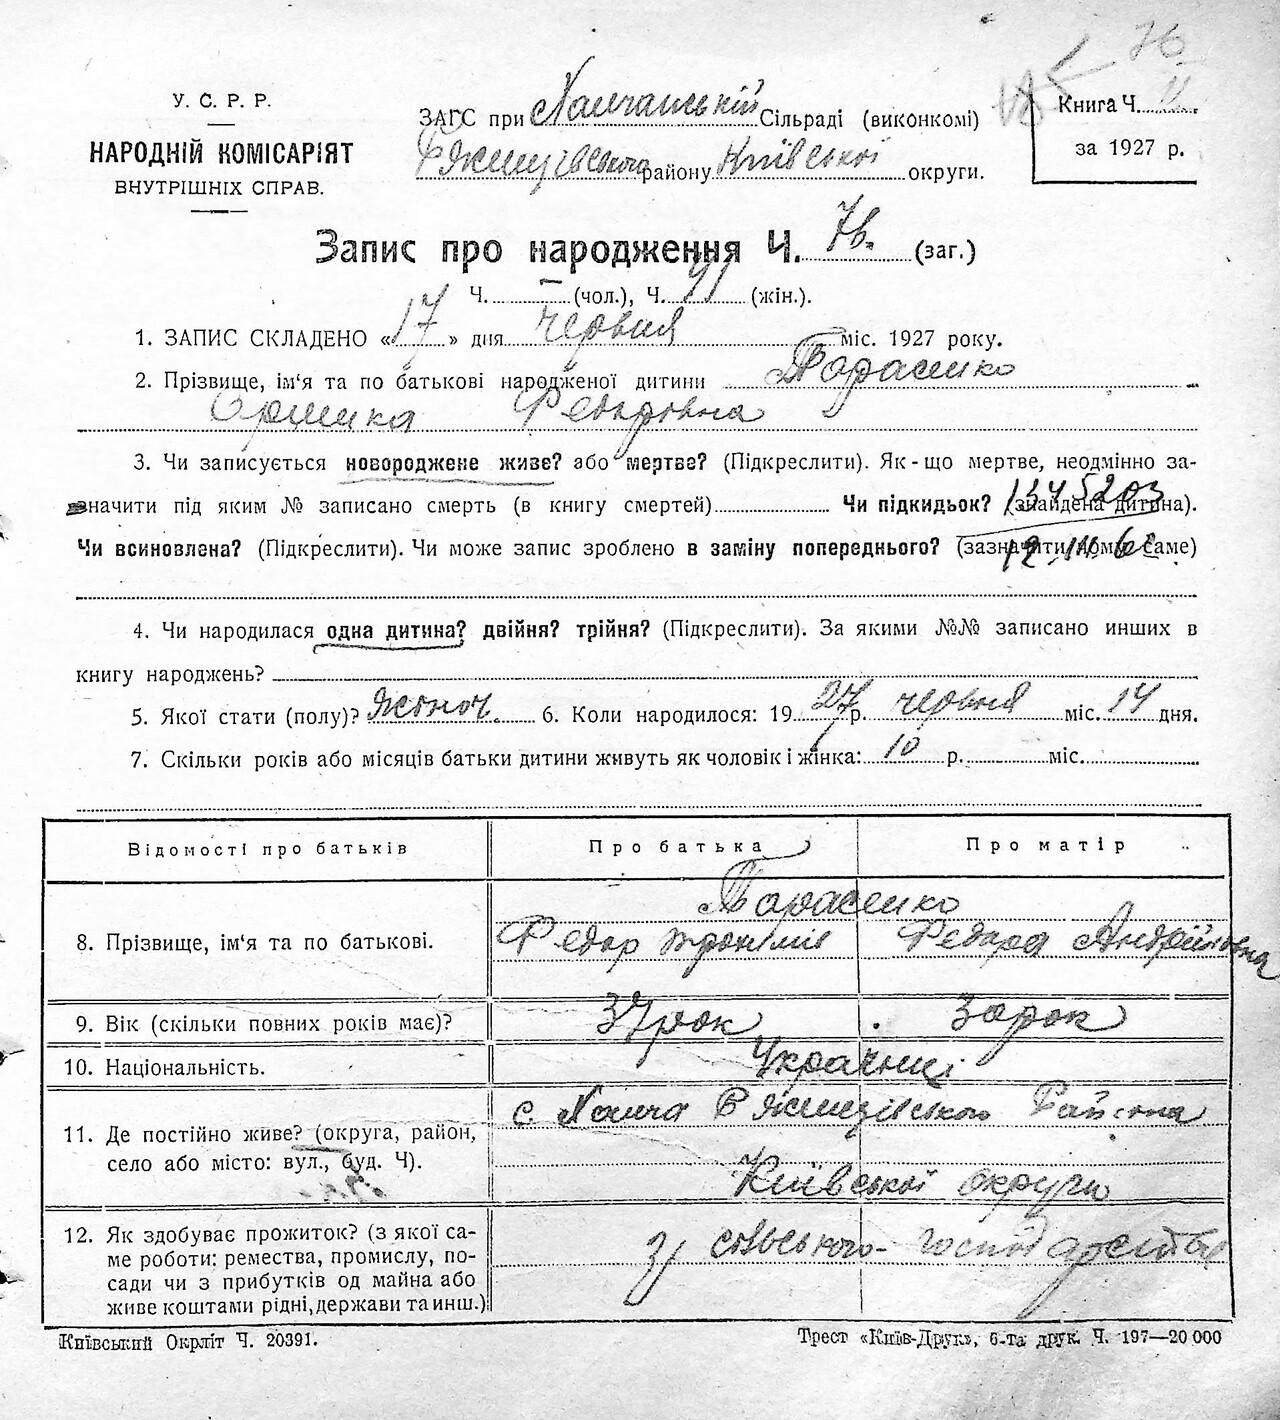 76
У. С. Р. Р.
НАРОДНІЙ КОМІСАРІЯТ
ВНУТРІШНІХ СПРАВ.
ЗАГС при Халчанській Сільраді (виконкомі)
Ржищівського району Київської округи.
Книга Ч. II
за 1927 р.
Запис про народження Ч. 76. (заг.)
Ч. — (чол.), Ч. 41 (жін.).
1. ЗАПИС СКЛАДЕНО «17» дня червня міс. 1927 року.
2. Прізвище, ім‘я та по батькові народженої дитини Тарасенко
Оришка Федоровна
3. Чи записується новороджене живе? або мертве? (Підкреслити). Як-що мертве, неодмінно за-
значити під яким № записано смерть (в книгу смертей) Чи підкидьок? (знайдена дитина).
1345203
Чи всиновлена? (Підкреслити). Чи може запис зроблено в заміну попереднього? (зазначити, кому саме)
4. Чи народилася одна дитина? двійня? трійня? (Підкреслити). За якими №№ записано инших в
книгу народжень?
5. Якої стати (полу)? жіноч. 6. Коли народилося: 1927 р. червня міс. 14 дня.
7. Скільки років або місяців батьки дитини живуть як чоловік і жінка: 10 р. міс.
Відомості про батьків Про батька Про матір
Тарасенко
8. Прізвище, ім‘я та по батькові. Федор Федора Андрійовна
9. Вік (скільки повних років має)? 37 рок 30 рок
10. Національність. Українці
11. Де постійно живе? (округа, район, с Халча Ржищівського Района
село або місто: вул., буд. Ч). Київської округи
12. Як здобуває прожиток? (з якої са-
ме роботи: ремества, промислу, по- Зі сільського господарства
сади чи з прибутків од майна або
живе коштами рідні, держави та инш.)
Київський Окрліт Ч. 20391.
Трест «Київ-Друк», 6-та друк. Ч. 197—20 000